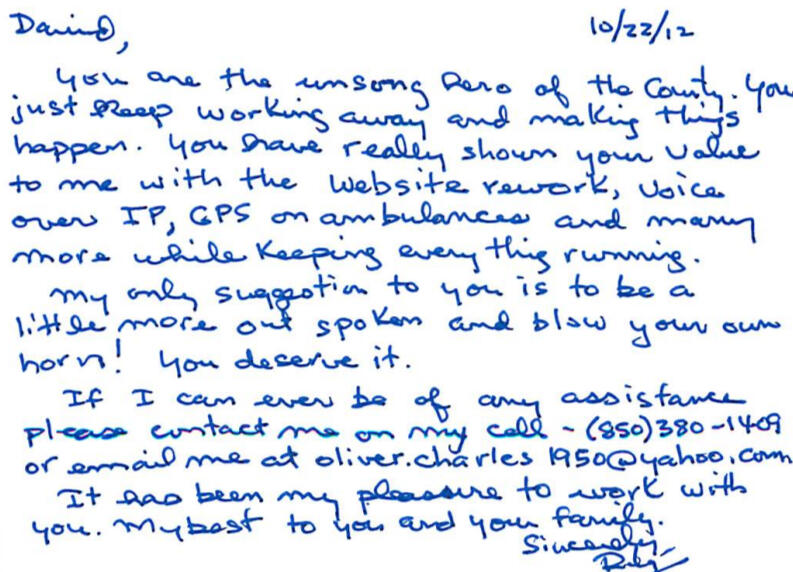 David, 10/22/12
you are the unsong hero of the County. You
just keep working away and making things
happen. You have really shown your value
to me with the website rework, voice
over IP, GPS on ambulances and many
more while keeping every thing running.
My only suggestion to you is to be a
little more out spoken and blow your own
horn! You deserve it.
If I can ever be of any assistance
please contact me on my cell - (850)380-1409
or email me at oliver.charles1950@yahoo.com
It has been my pleasure to work with
you. My best to you and your family.
Sincerely,